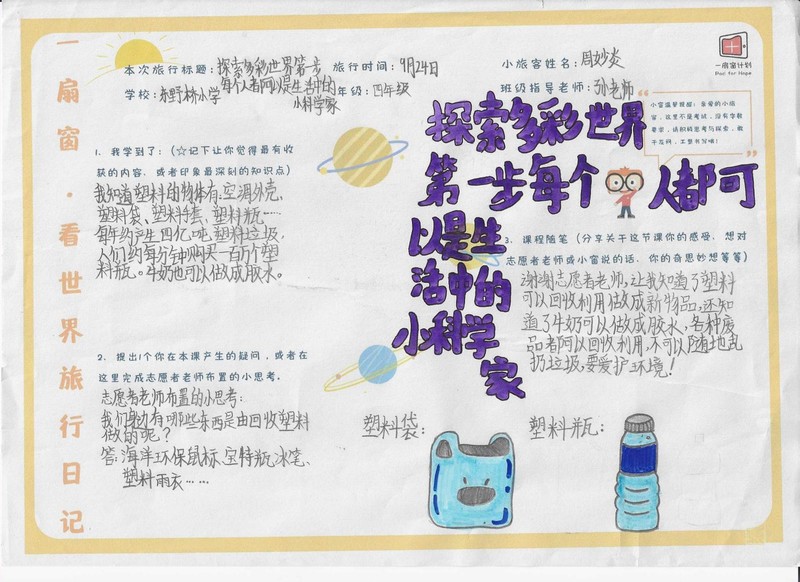 一扇窗·看世界旅行日记
本次旅行标题：探索多彩世界第一步
每个人都可以是生活中的
小科学家
旅行时间：9月24日
小旅客姓名：周妙炎
学校：东野桥小学
年级：四年级
班级指导老师：孙老师
一扇窗计划
Pad for Hope
小窗温馨提醒：亲爱的小旅
客，这里不是考试，没有字数
要求，请积极思考与探索，敢
于发问，工整书写哦！
探索多彩世界
第一步每个人都可
以是生
活中的
小科学
家
1. 我学到了：（☆记下让你觉得最有收
获的内容，或者印象最深刻的知识点）
我知道塑料的物体有：空调外壳、
塑料袋、塑料手套、塑料瓶……
每年约产生四亿吨塑料垃圾，
人们约每分钟购买一百万个塑
料瓶。牛奶也可以做成胶水。
2. 提出1个你在本课产生的疑问，或者在
这里完成志愿者老师布置的小思考。
志愿者老师布置的小思考：
我们身边有哪些东西是由回收塑料
做的呢？
答：海洋环保鼠标、宝特瓶冰笔、
塑料雨衣……
3. 课程随笔（分享关于这节课你的感受，想对
志愿者老师或小窗说的话，你的奇思妙想等等）
谢谢志愿者老师，让我知道了塑料
可以回收利用做成新物品，还知
道了牛奶可以做成胶水，各种废
品都可以回收利用，不可以随地乱
扔垃圾，要爱护环境！
塑料袋：
塑料瓶：